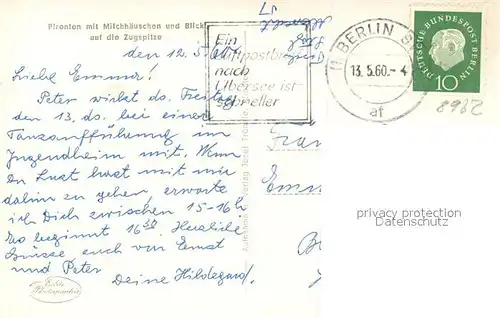 Pfronten mit Milchhäuschen und Blick
auf die Zugspitze
den 12.5.60
Liebe Emmi!
Peter wirkt ds. Freitag
den 13. ds. bei einer
Tanzaufführung im
Jugendheim mit. Wenn
Du Lust hast mit mir
dahin zu gehen, erwarte
ich Dich zwischen 15-16h
Es beginnt 16 30. Herzliche
Grüsse auch von Ernst
und Peter
Deine Hildegard.
Echte
Photographie
Ein
Luftpostbrief
nach
Übersee ist
schneller
BERLIN
13.5.60.-4
af
DEUTSCHE BUNDESPOST BERLIN
10
8962
Emm
privacy protection
Datenschutz